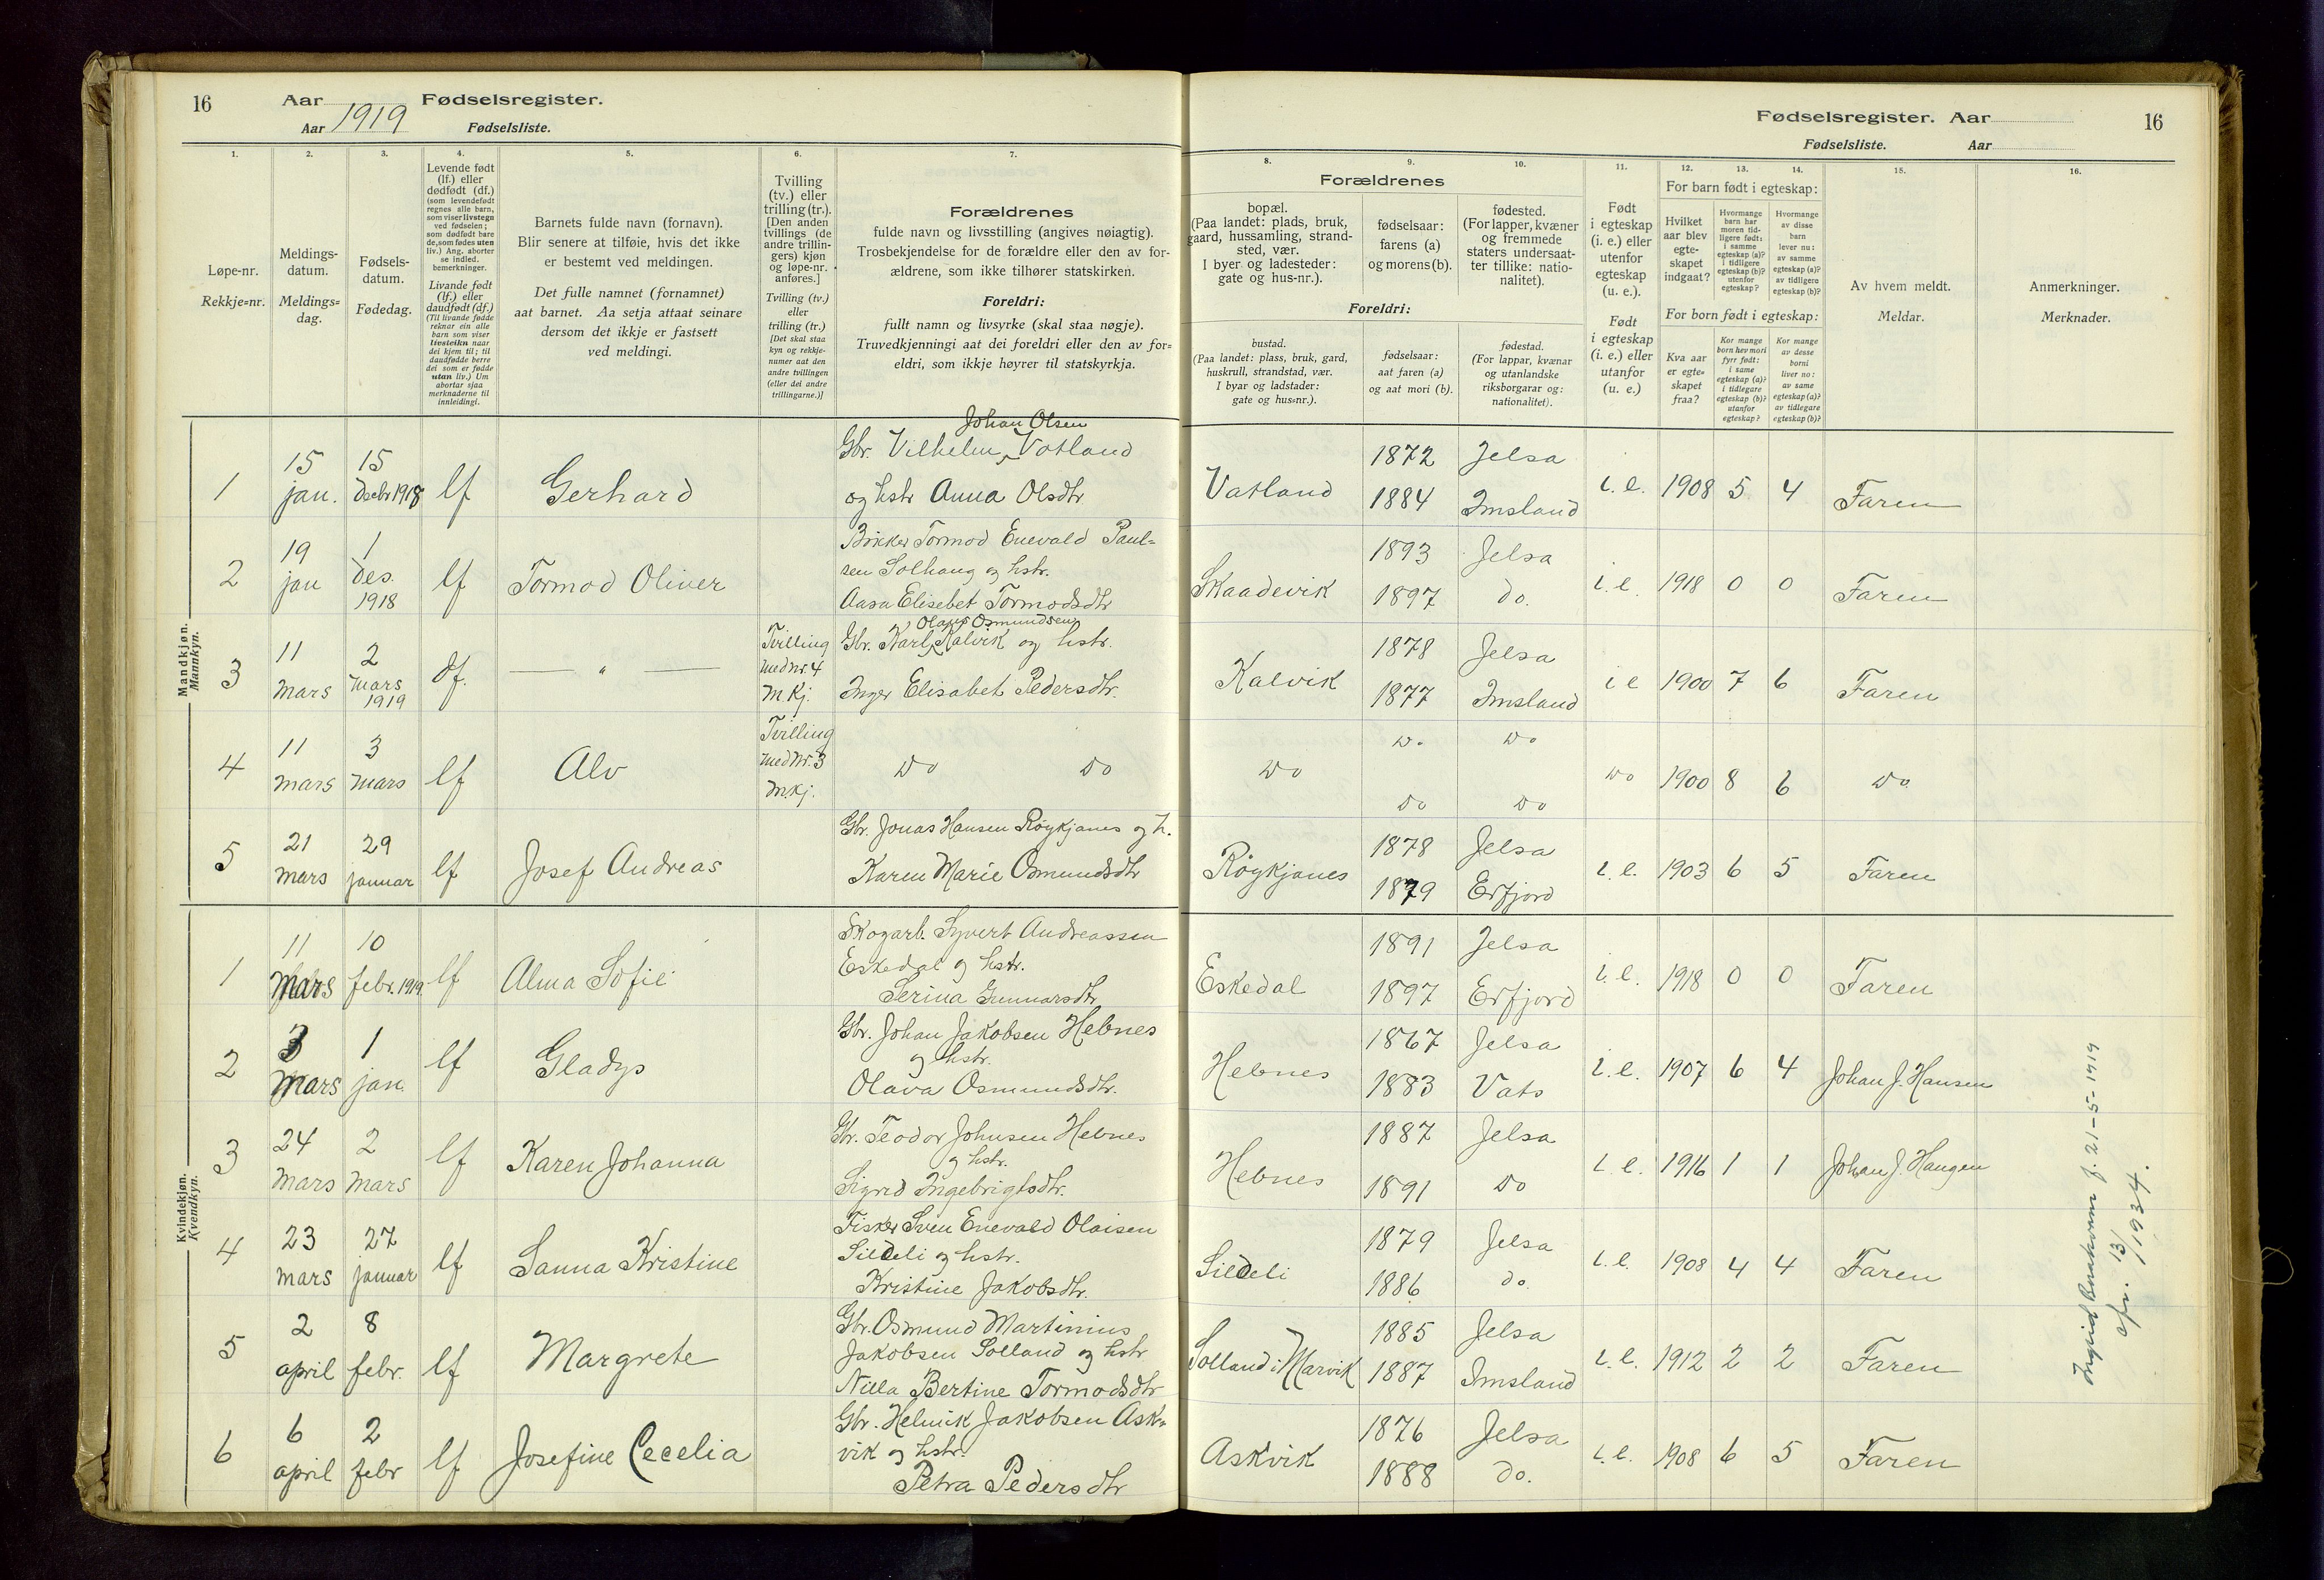 16 Aar 1919 Fødselsregister.
Aar Fødselsliste.
1. 2. 3. 4. 5. 6. 7.
Løpe-nr.
Rekkje=nr.
Meldings-
datum.
Meldings=
dag.
Fødsels-
datum.
Fødedag.
Levende født
(lf.) eller
dødfødt (df.)
(som levendefødt
regnes alle barn,
som viser livstegn
ved fødselen;
som dødfødt bare
de, som fødes uten
liv.) Ang. aborter
se indled.
bemerkninger.
Livande født
(lf.) eller
daudfødt (df.)
(Til livande fødde
reknar ein alle
barn som viser
livsteikn naar
dei kjem til; til
daudfødde berre
dei som er fødde
utan liv.) Um
abortar sjaa
merknaderne til
innleidingi.
Barnets fulde navn (fornavn).
Blir senere at tilføie, hvis det ikke
er bestemt ved meldingen.
Det fulle namnet (fornamnet)
aat barnet. Aa setja attaat seinare
dersom det ikkje er fastsett
ved meldingi.
Tvilling
(tv.) eller
trilling (tr.).
[Den anden
tvillings (de
andre trillin-
gers) kjøn
og løpe-nr.
anføres.]
Tvilling (tv.)
eller
trilling (tr.)
[Det skal staa
kyn og rekkje-
numer aat den
andre tvillingen
(eller dei andre
trillingarne.)]
Forældrenes
fulde navn og livsstilling (angives nøiagtig).
Trosbekjendelse for de forældre eller den av for-
ældrene, som ikke tilhører statskirken.
Foreldri:
fullt namn og livsyrke (skal staa nøgje).
Truvedkjenningi aat dei foreldri eller den av for=
eldri, som ikkje høyrer til statskyrkja.
Mandkjøn.
Mannkyn.
Johan Olsen
1 15 jan. 15 decbr 1918 lf Gerhard Gbr. Vilhelm Vatland
og hstr Anna Olsdtr
2 19 jan 1 des. 1918 lf Tormod Oliver Tormod Enevald Paul=
sen Solhaug og hstr.
Aasa Elisebet Tormodsdtr
3 11 mars 2 mars 1919 df. — " — Tvilling med Nr. 4 m.kj. Gbr. Karl Kalvik og hstr.
Olaus Osmundsen
Inger Elisabet Pedersdtr.
4 11 mars 3 mars lf Alv Tvilling med Nr. 3 m.kj. do do
5 21 mars 29 januar lf Josef Andreas Gbr. Jonas Hansen Røykjanes og h.
Karen Marie Osmundsdtr
Kvindekjøn.
Kvendkyn.
1 11 Mars 10 febr. 1919 lf Alma Sofie Skogarb. Syvert Andreassen
Eskedal og hstr.
Serina Gunnarsdtr
2 3 Mars 1 jan. lf Gladys Gbr. Johan Jakobsen Hebnes
og hstr.
Olava Osmundsdtr.
3 24 Mars 2 Mars lf Karen Johanna Gbr. Teodor Johnsen Hebnes
og hstr.
Sigrid Ingebrigtsdtr.
4 23 mars 27 januar lf Sanna Kristine Fisker Sven Enevald Olaisen
Sildeli og hstr.
Kristine Jakobsdtr.
5 2 april 8 febr. lf Margrete Gbr. Osmund Martinius
Jakobsen Solland og hstr
Nilla Bertine Tormodsdtr
6 6 april 2 febr lf Josefine Cecelia Gbr. Helmik Jakobsen Ask=
vik og hstr.
Petra Pedersdtr
Fødselsregister. Aar 16
Fødselsliste. Aar
8. 9. 10. 11. 12. 13. 14. 15. 16.
Forældrenes
bopæl.
(Paa landet: plads, bruk,
gaard, hussamling, strand-
sted, vær.
I byer og ladesteder:
gate og hus-nr.).
fødselsaar:
farens (a)
og morens (b).
fødested.
(For lapper, kvæner
og fremmede
staters undersaat-
ter tillike: natio-
nalitet).
Foreldri:
bustad.
(Paa landet: plass, bruk, gard,
huskrull, strandstad, vær.
I byar og ladstader:
gate og hus=nr.).
fødselsaar:
aat faren (a)
og aat mori (b).
fødestad.
(For lappar, kvænar
og utanlandske
riksborgarar og:
nationalitet).
Født
i egteskap
(i. e.) eller
utenfor
egteskap
(u. e.).
Født
i egteskap
(i. e.) eller
utanfor
(u. e.)
For barn født i egteskap:
Hvilket
aar blev
egte-
skapet
indgaat?
Hvormange
barn har
moren tid-
ligere født:
i samme
egteskap (a)?
i tidligere
egteskap (b)?
utenfor
egteskap?
Hvormange
av disse
barn
lever nu:
av samme
egteskap (a)?
av tidligere
egteskap (b)?
For born født i egteskap:
Kva aar
er egte=
skapet
fraa?
Kor mange
born hev mori
fyrr født:
i same
egteskap (a)?
i tidlegare
egteskap (b)?
utanfor
egteskap?
Kor mange
av desse
borni
liver no:
av same
egteskap (a)?
av tidlegare
egteskap (b)?
Av hvem meldt.
Meldar.
Anmerkninger.
Merknader.
Vatland 1872 1884 Jelsa Imsland i. e. 1908 5 4 Faren
Skaadevik 1893 1897 Jelsa do. i. e. 1918 0 0 Faren
Kalvik 1878 1877 Jelsa Imsland i e 1900 7 6 Faren
do do do do do do 1900 8 6 do
Røykjanes 1878 1879 Jelsa Erfjord i. e. 1903 6 5 Faren
Eskedal 1891 1897 Jelsa Erfjord i. e. 1918 0 0 Faren
Hebnes 1867 1883 Jelsa Vats i. e. 1907 6 4 Johan J. Hansen
Hebnes 1887 1891 Jelsa do i. e. 1916 1 1 Johan J. Haugen
Sildeli 1879 1886 Jelsa do. i. e. 1908 4 4 Faren
Solland i Marvik 1885 1887 Jelsa Imsland i. e. 1912 2 2 Faren
Askvik 1876 1888 Jelsa do. i. e. 1908 6 5 Faren
f. 21-5-1919
13/1 1934.